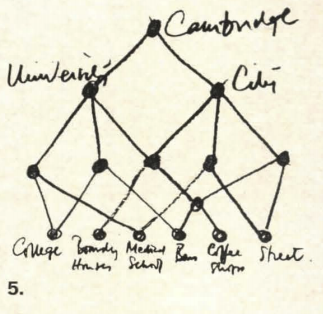 Cambridge
University
City
College
Boarding
Houses
Medical
School
Bars
Coffee
Shops
Street.
5.